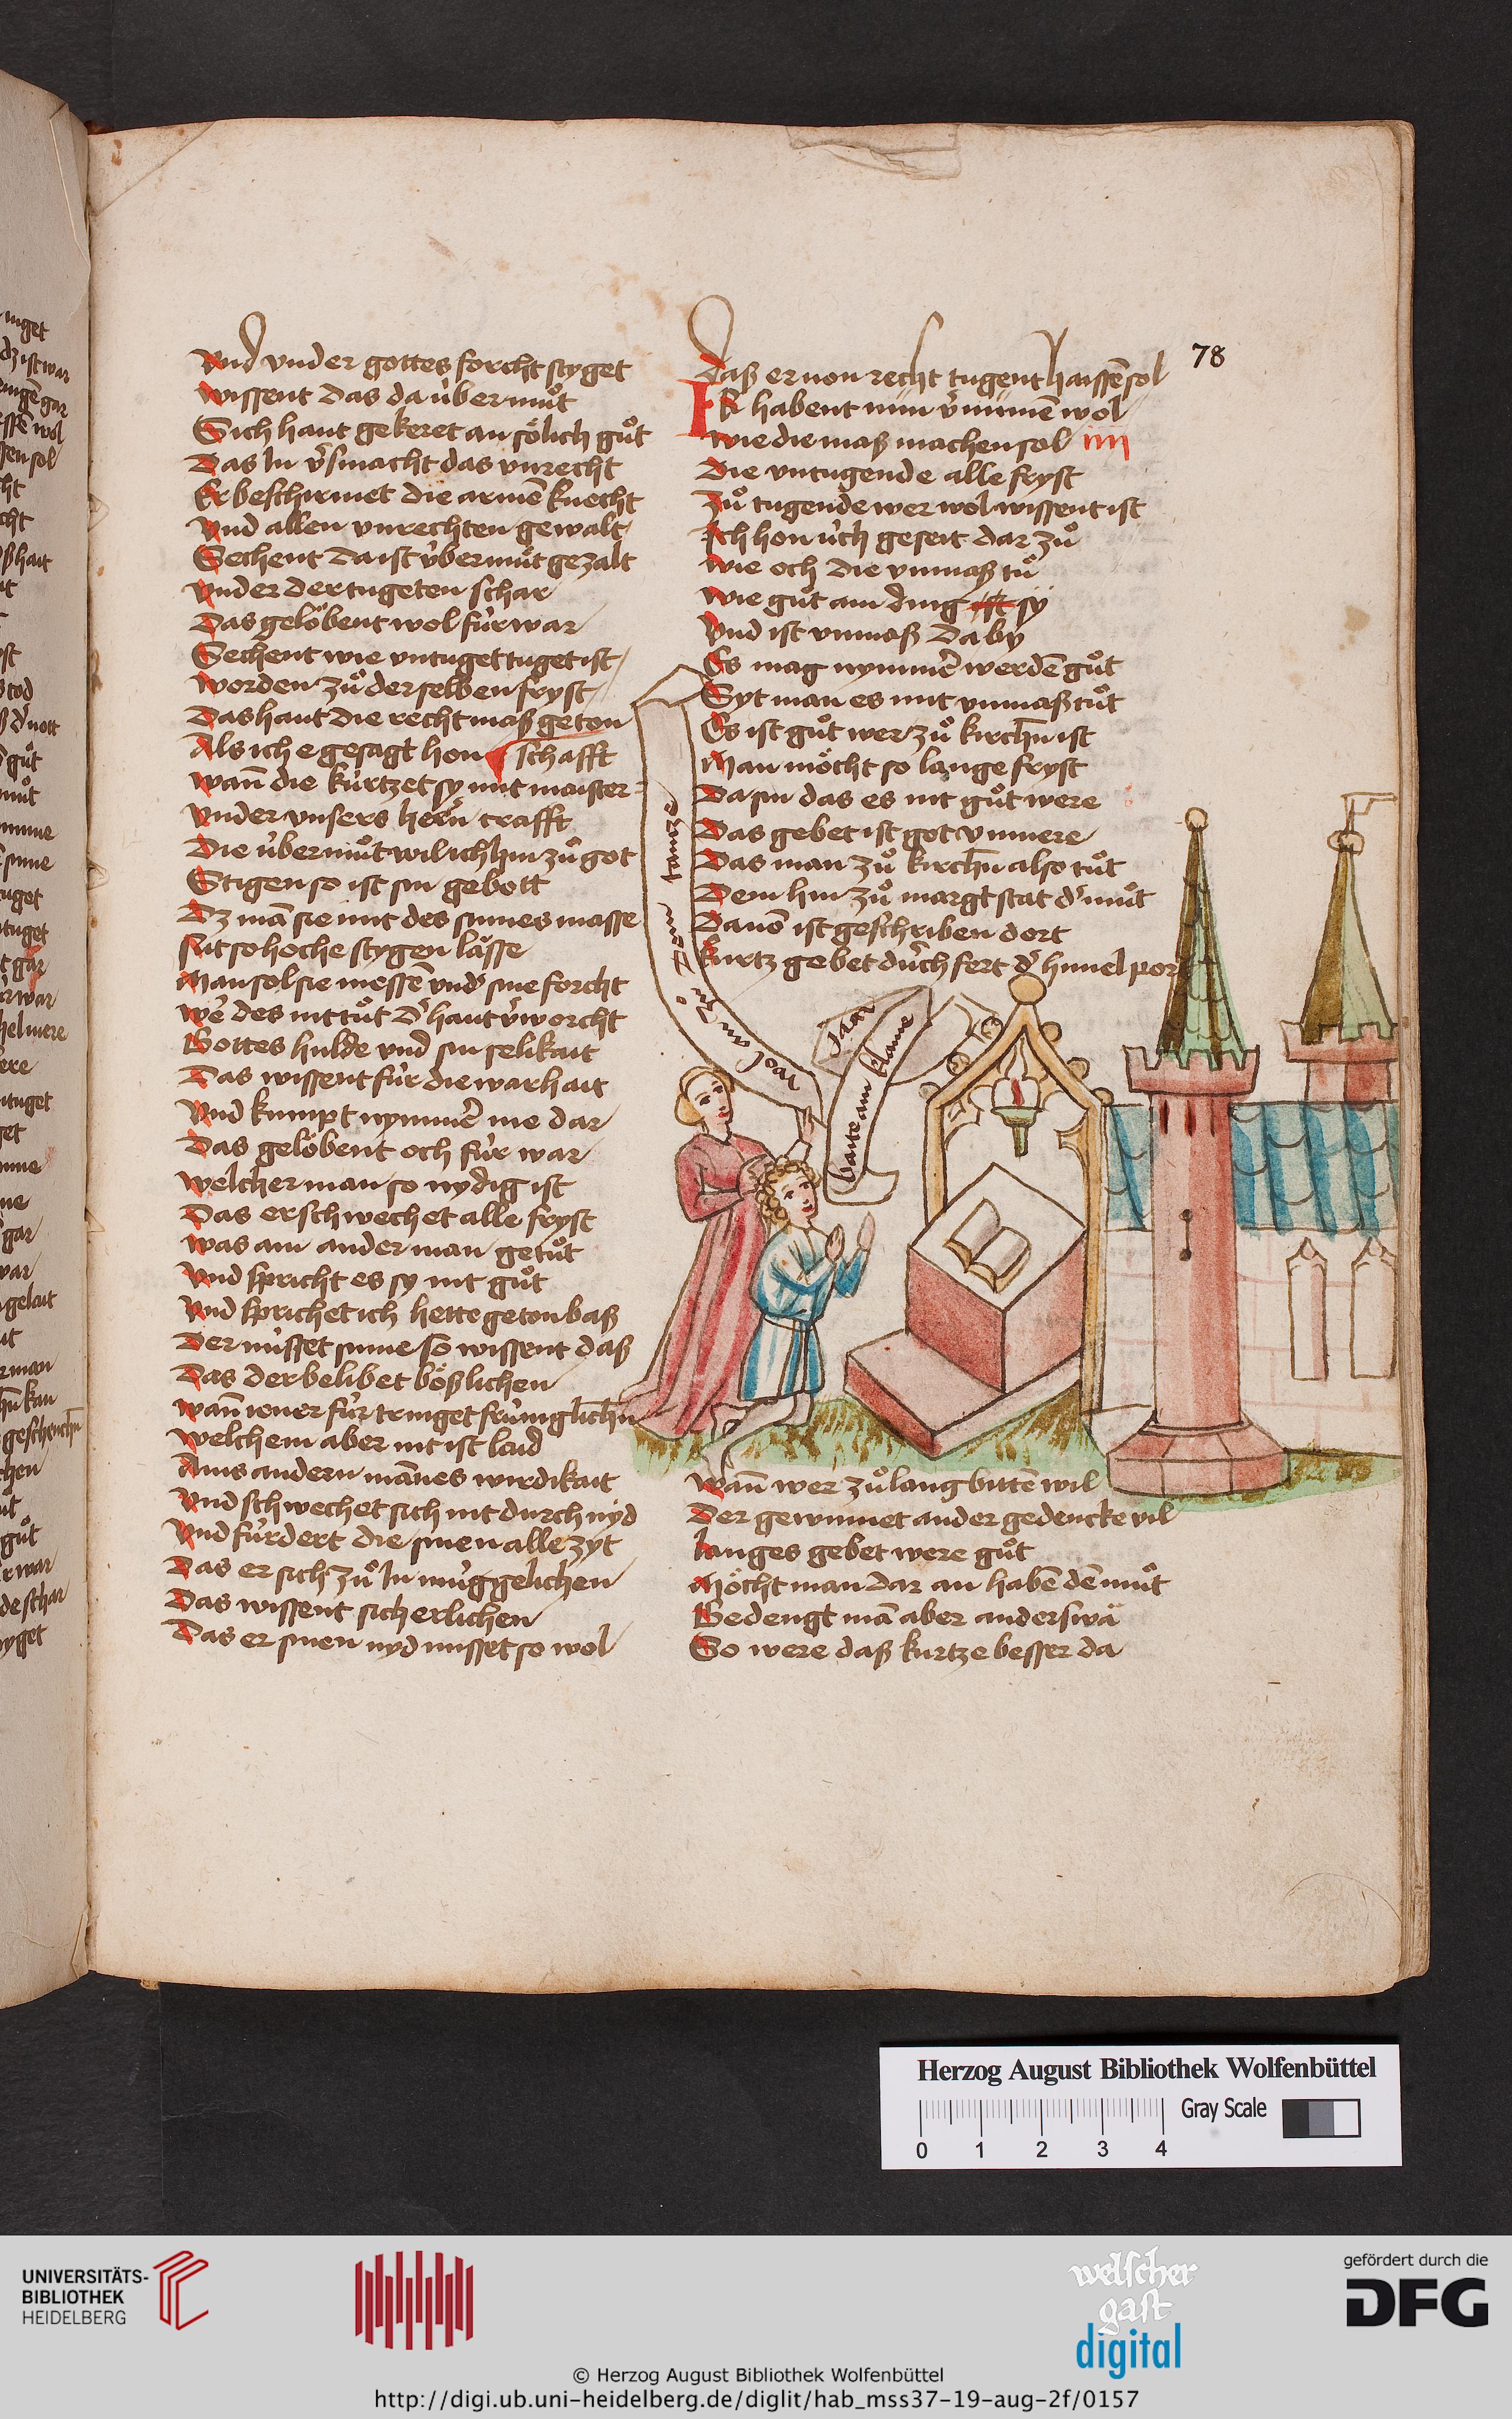 Vnd vnder gottes forcht styget
wissent das da übermuͦt
Sich hant gekeret an sölich guͦt
Das In v̄smacht das vnrecht
Er beschirmet die armē knecht
Vnd allen vnrechten gewalt
Sechent da ist v̈bermuͤt gezalt
Vnder der tugeten schar
Das gelöbent wol fúr war
Sechent wie vntuget tuget ist
Worden zuͦ der selben fryst
Das hant die recht maß geton
Als ich e gesagt hon
schafft
wañ die kúrtzet sy mit maister=
Vnder vnsers herñ crafft
Die übermuͦt wil ich hin zuͦ got
Stigen so ist sin gebott
Dz mā sie mit des sinnes masse
Nit so hoche stygen läsße
Man sol sie messē vnd̓ sine forcht
wē des nit tuͦt d̓ hant v̄worcht
Gottes hulde vnd sin selikait
Das wissent fúr die warhait
Vnd kumpt nymm̄e me dar
Das gelöbent och fúr war
welcher man so nydig ist
Das er schwechet alle fryst
was ain ander man getuͦt
Vnd spricht es sy nit guͦt
Vnd sprichet ich hette geton baß
Der nússet sinne so wissent daß
Das der belibet bößlichen
wañ iener fúr tringet frúmglich̄n
welchem aber nit ist laid
Ains andern mānes wirdikait
Vnd schwechet sich nit durch nyd
Vnd fúrdert die sinen alle zyt
Das er sich zuͦ In múg gelichen
Das wissent sicherlichen
Das er sinen nyd nusset so wol
Daß er non recht tugent haissē sol
78
Ir habent nun v̄numē wol
wie die maß machen sol iiii
Die vntugende alle fryst
Zuͦ tugende wer wol wissent ist
Ich hon úch geseit dar zuͦ
wie och die vnmaß tuͦ
wie guͦt ain ding ist sy
Vnd ist vnmaß da by
Es mag nymm̄e werdē guͦt
Syt man es mit vnmaß tuͦt
Es ist guͦt wer zuͦ kirch̄n ist
Man möcht so lange fryst
Da sin das es nit guͦt were
Das gebet ist got vnmere
Das man zuͦ kirch̄n also tuͦt
Dem hin zuͦ margt stat d̓ muͦt
Dauō ist geschriben dort
kurtz gebet dúrch fert d̓ himel por
tantze
wol
baite ain klaine
wañ wer zuͦ lang bittē wil
Der gewinnet ander gedencke vil
langes gebet were guͦt
Möcht man dar an habē dē muͦt
Gedengt mā aber anderswä
So were daß kurtze besser da
Herzog August Bibliothek Wolfenbüttel
Gray Scale
0 1 2 3 4
UNIVERSITÄTS-
BIBLIOTHEK
HEIDELBERG
welscher
gast
digital
gefördert durch die
DFG
© Herzog August Bibliothek Wolfenbüttel
http://digi.ub.uni-heidelberg.de/diglit/hab_mss37-19-aug-2f/0157